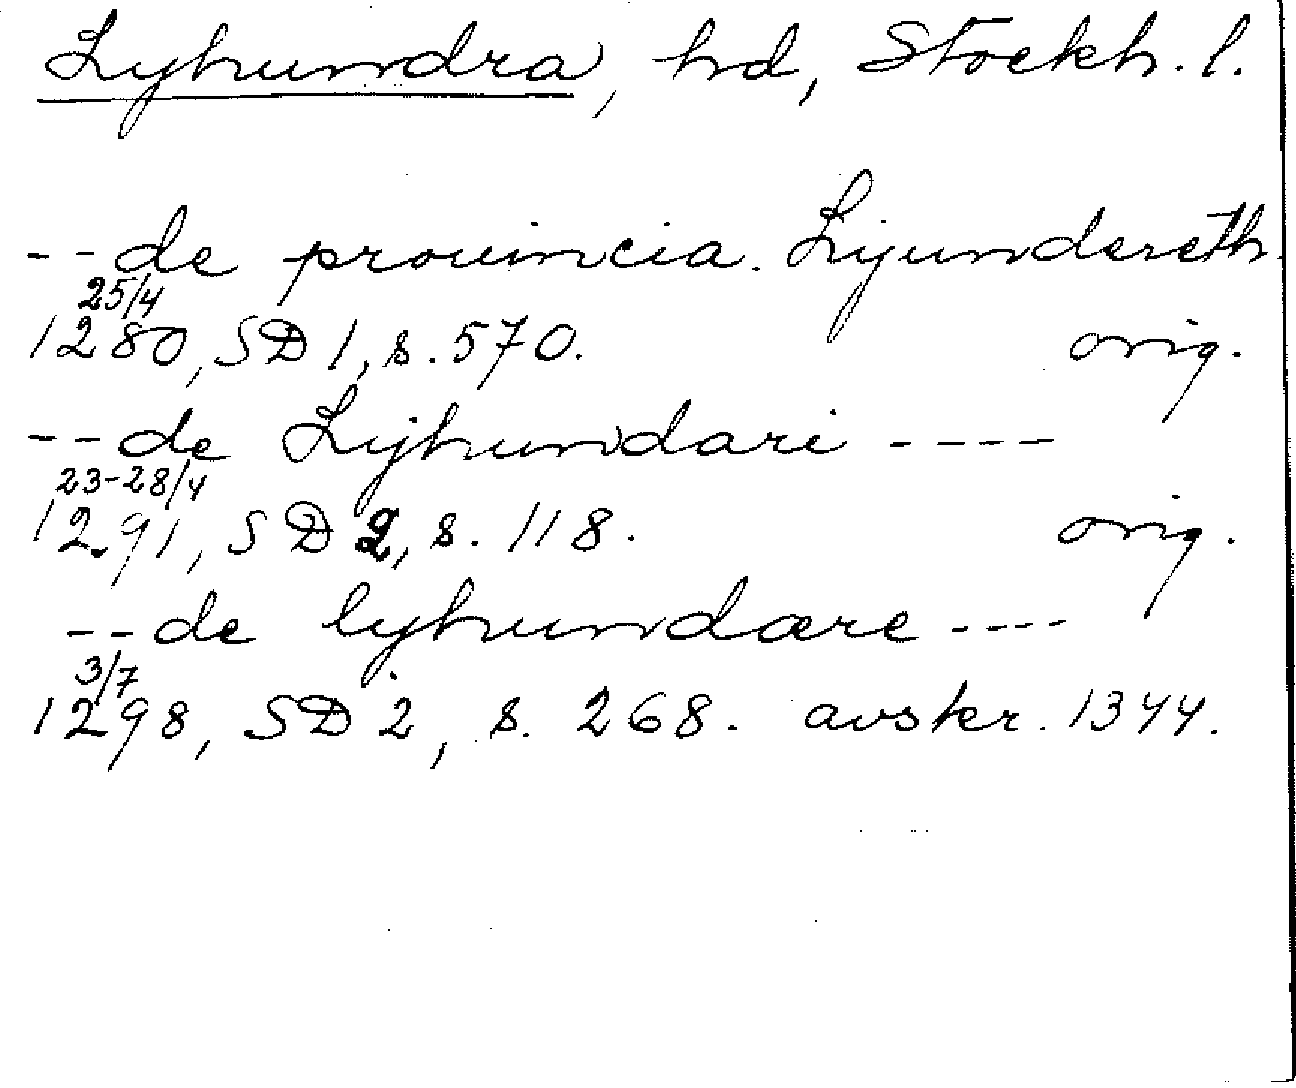 Lyhundra, hd, Stockh. l.
--de prouincia. Lijundereth.
25/4
1280, SD 1, s. 570. orig.
--de Lijhundari ----
23-28/4
1291, SD 2, s. 118. orig.
--de lijhundære ----
3/7
1298, SD 2, s. 268. avskr. 1344.